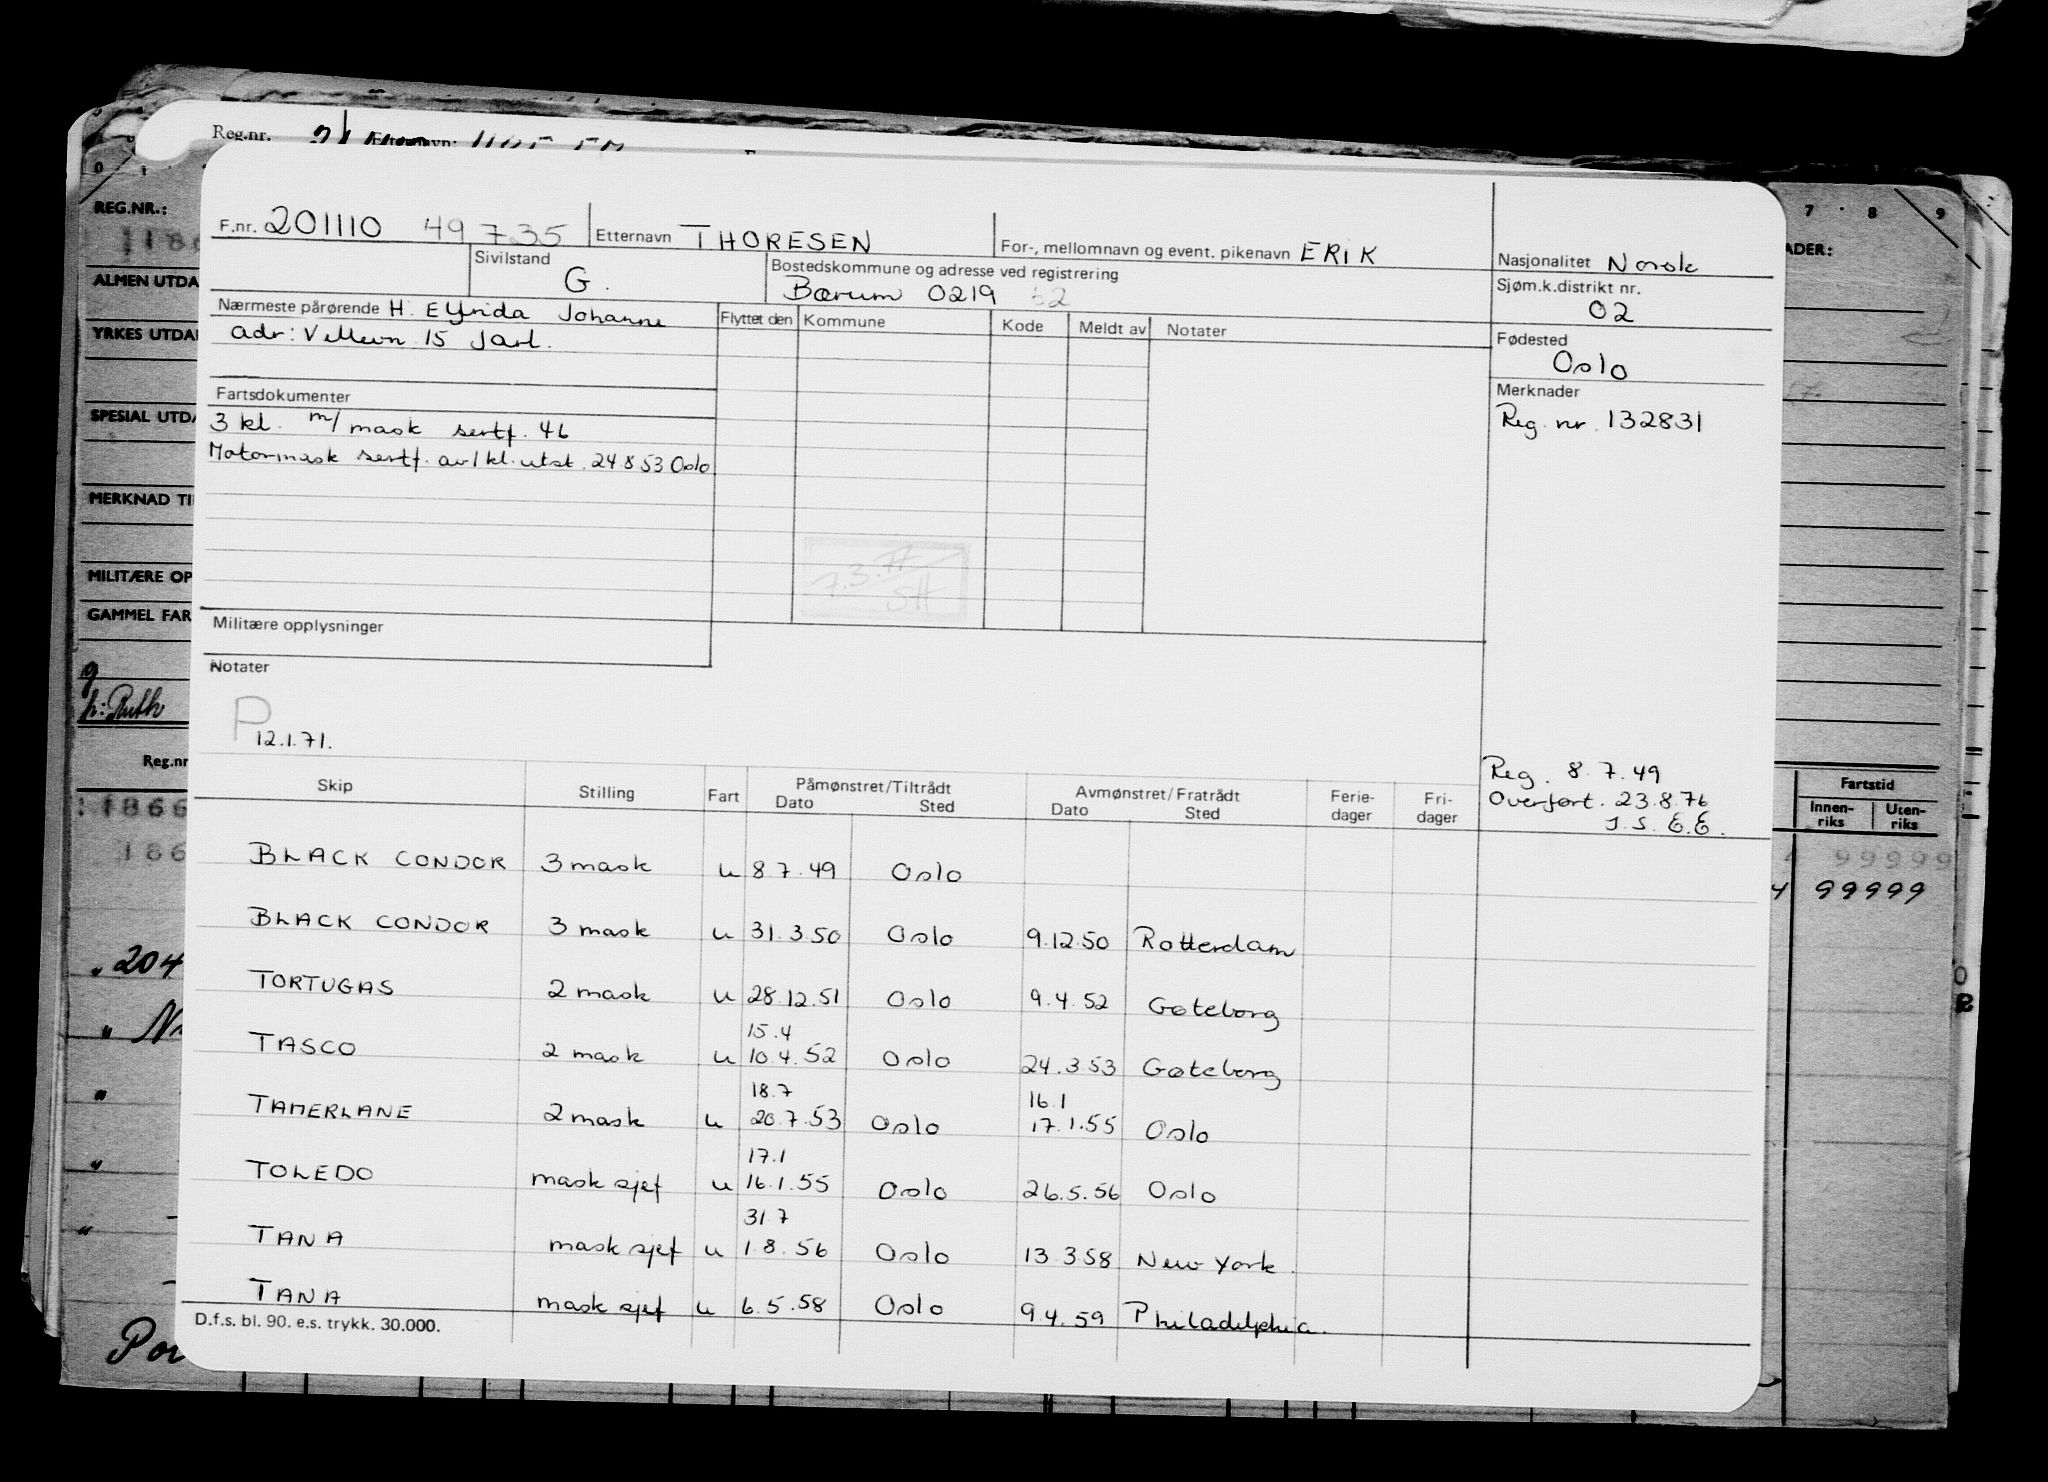 Reg.nr.
REG.NR.:
ALMEN UTDA
YRKES UTDA
SPESIAL UTDA
MERKNAD TI
MILITÆRE OP
GAMMEL FAR
g
h: Ruth
Reg.nr
1866
186
204
Por
F.nr. 201110 49735 Etternavn THORESEN For-, mellomnavn og event. pikenavn ERIK
Nasjonalitet Norsk
Sivilstand G. Bostedskommune og adresse ved registrering
Bærum 0219 52
Sjøm.k.distrikt nr.
02
Nærmeste pårørende H. Elfrida Johanne
adr: Vallevn 15 Jarl.
Flyttet den Kommune Kode Meldt av Notater
Fødested
Oslo
Fartsdokumenter
3 kl. m/mask sertf. 46
Motormask sertf. av 1 kl. utst. 24.8 53 Oslo
Merknader
Reg. nr. 132831
7.3.77
SH
Militære opplysninger
Notater
P 12.1.71.
Reg. 8.7.49
Overført. 23.8.76
I.S. E.E.
Skip Stilling Fart Påmønstret/Tiltrådt Avmønstret/Fratrådt Ferie- Fri-
Dato Sted Dato Sted dager dager
BLACK CONDOR 3 mask u 8.7.49 Oslo
BLACK CONDOR 3 mask u 31.3.50 Oslo 9.12.50 Rotterdam
TORTUGAS 2 mask u 28.12.51 Oslo 9.4.52 Gøteborg
15.4
TASCO 2 mask u 10.4.52 Oslo 24.3.53 Gøteborg
18.7 16.1
TAMERLANE 2 mask u 20.7.53 Oslo 17.1.55 Oslo
17.1
TOLEDO mask sjef u 16.1.55 Oslo 26.5.56 Oslo
31.7
TANA mask sjef u 1.8.56 Oslo 13.3.58 New York.
TANA mask sjef u 6.5.58 Oslo 9.4.59 Philadelphia.
D.f.s. bl. 90. e.s. trykk. 30.000.
7 8 9
ADER:
Fartstid
Innen-
riks
Uten-
riks
99999
99999